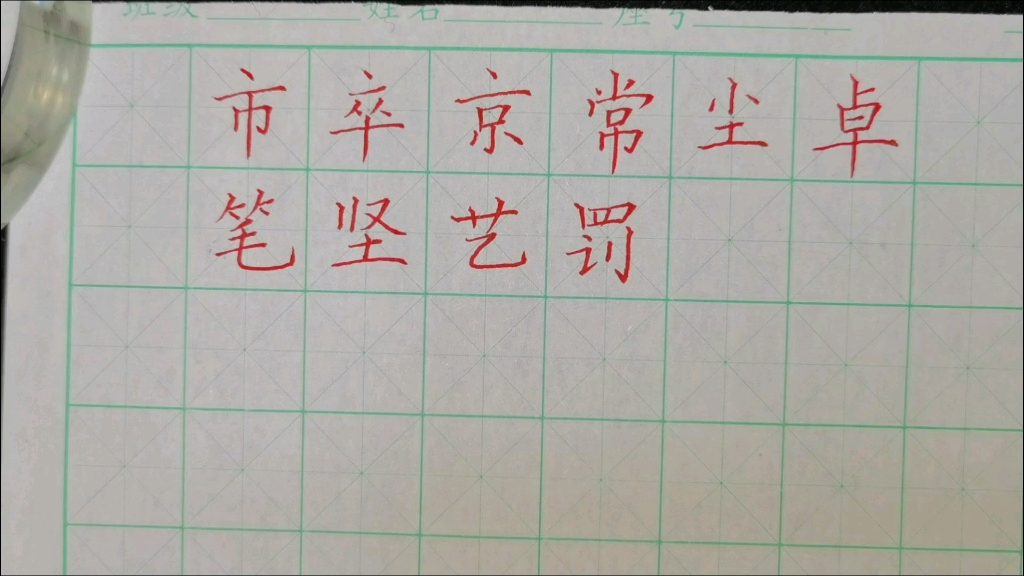 班级 姓名 座号
市卒京常尘卓
笔坚艺罚